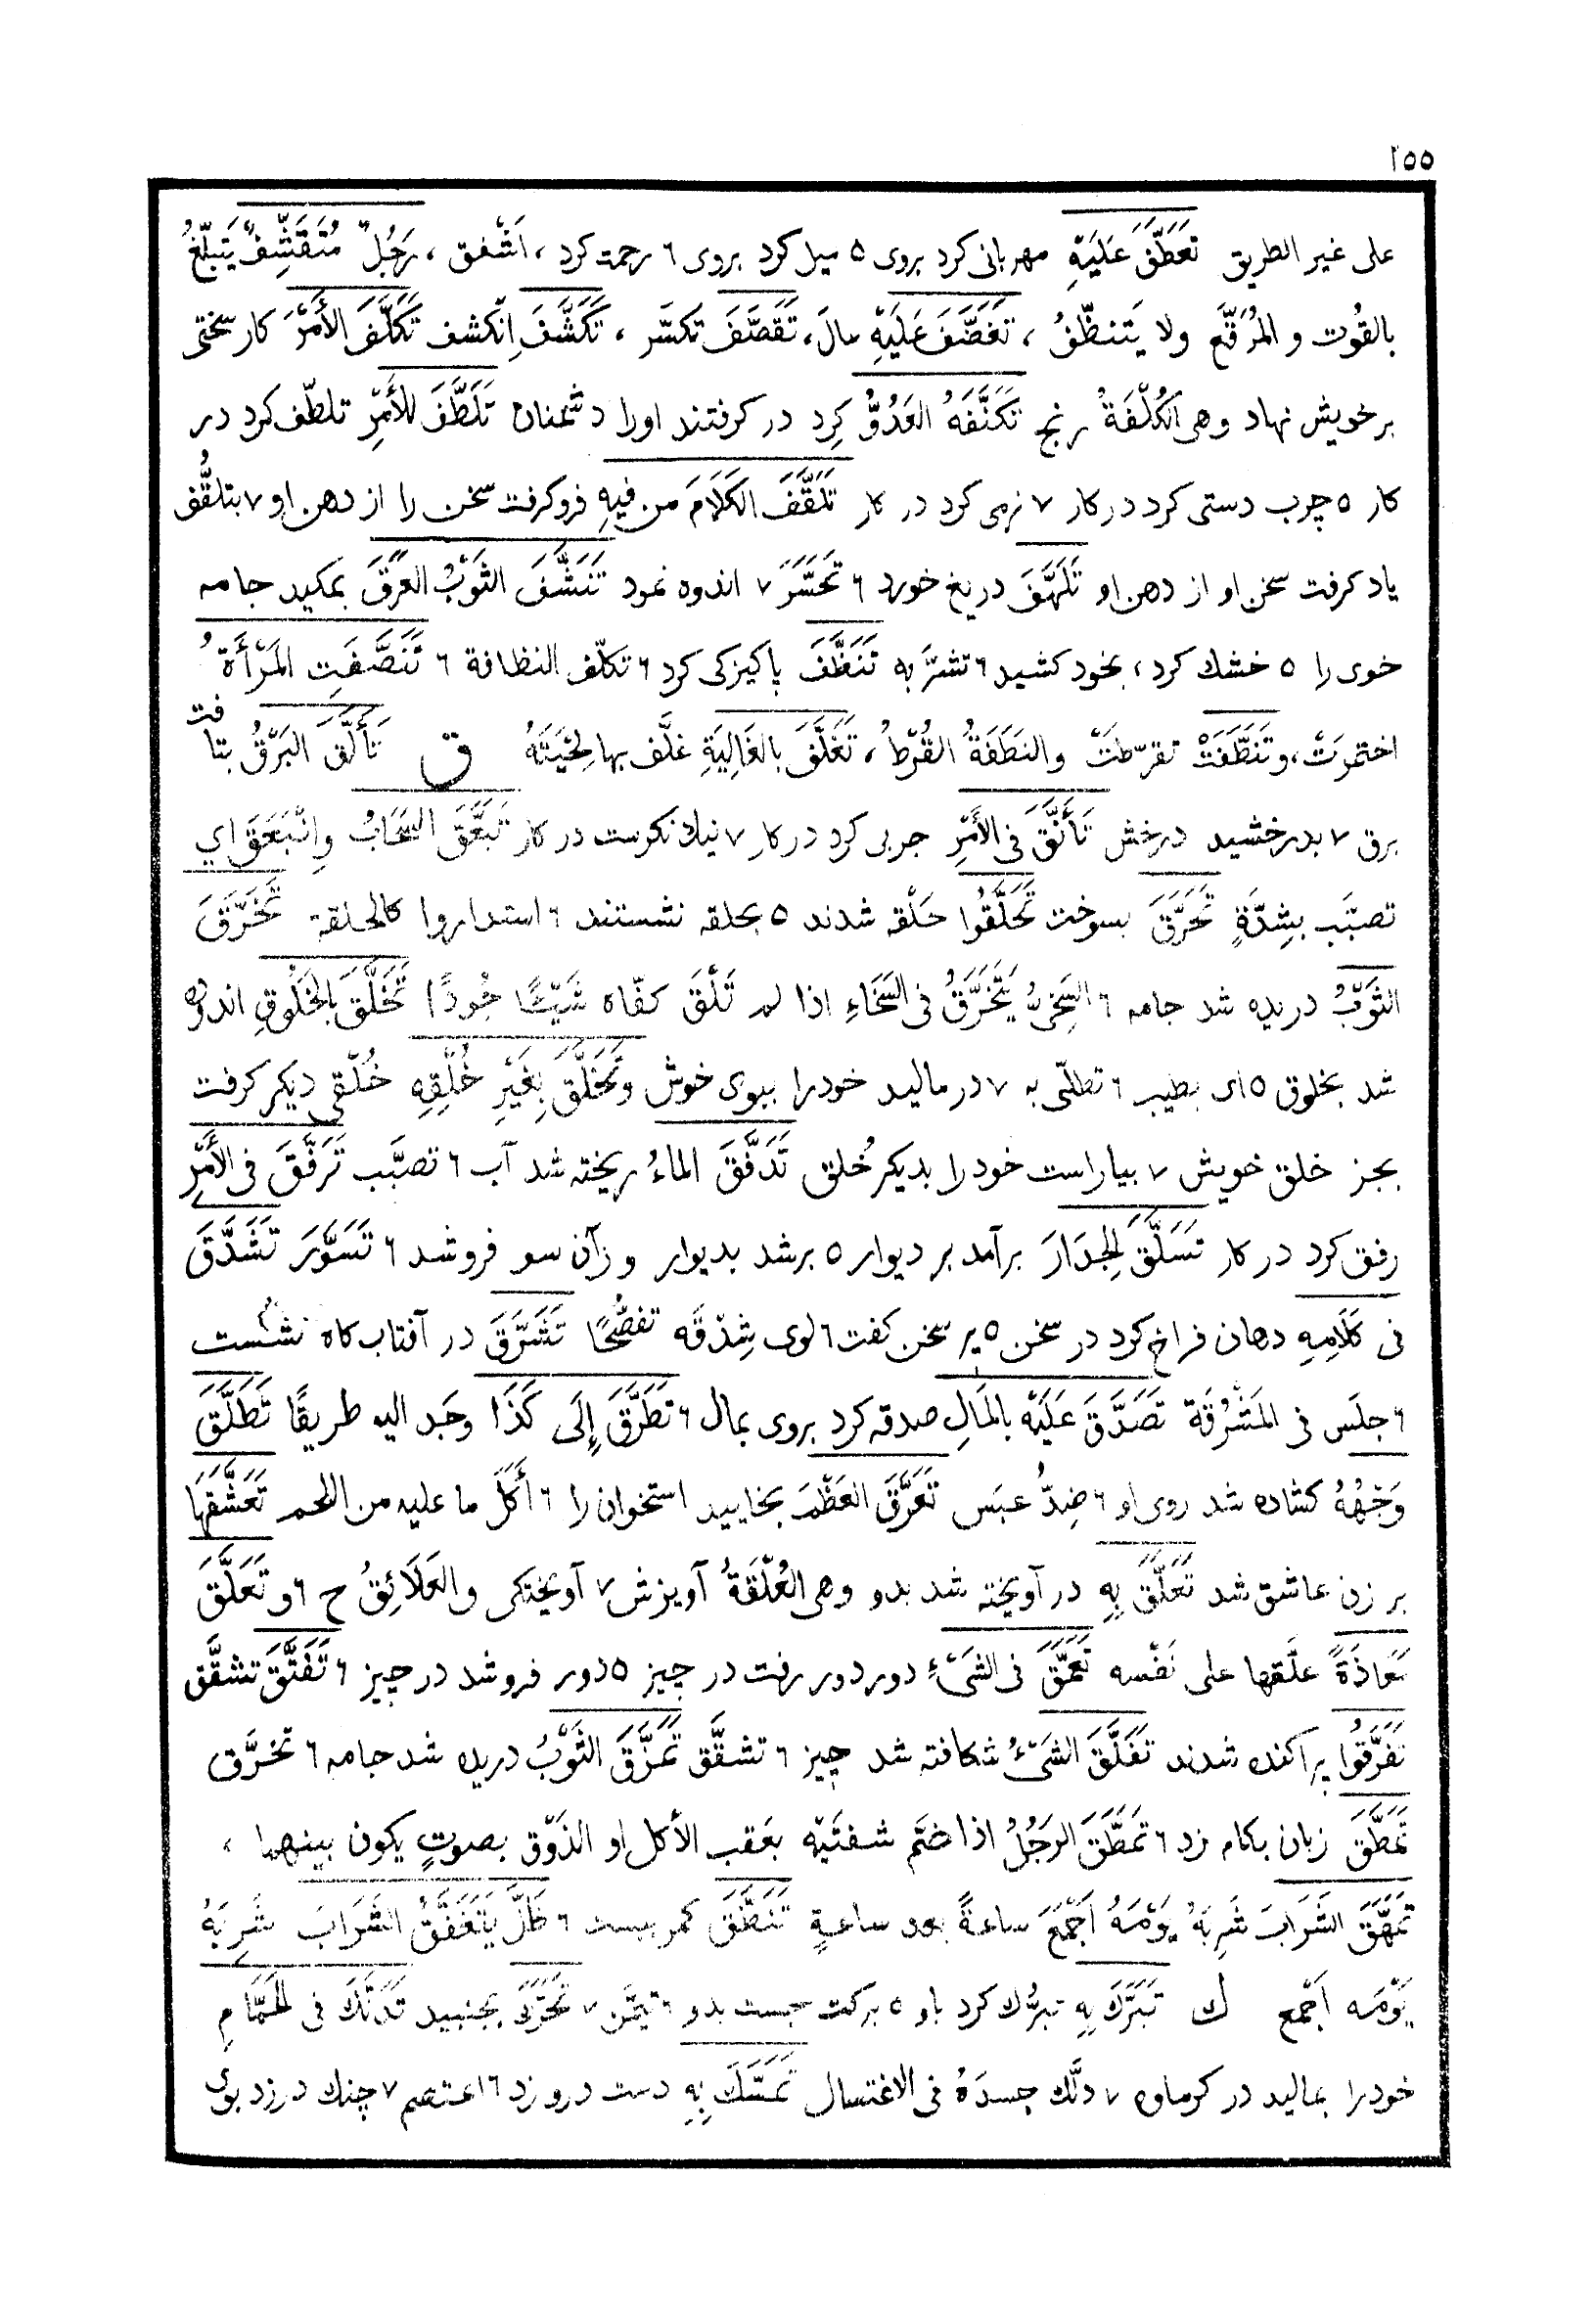 ٢٥٥
على غير الطريق تَعَطَّفَ عَلَيْهِ مهربانى كرد بروى ٥ ميل كرد بروى ٦ رحمت كرد ، اَشْفق ، رَجُلٌ مُتَقَشِّفٌ يَتَبلَّغُ
بالقُوت و المُرَقَّع ولا يَتنظّفُ ، تَغَضَّفَ عَلَيْهِ مالَ ، تَقَصَّفَ تكسَّر ، تَكَشَّفَ اِنْكشف تَكَلَّفَ الأَمْرَ كار سختى
برخويش نهاد وهى الكُلْفَةُ رنج تَكَنَّفَهُ العَدُوُّ كِرد در كرفتند اورا دشمنان تَلَطَّفَ للأَمْرِ تلطّف كرد در
كار ٥ چرب دستى كرد در كار ٧ نرمى كرد در كار تَلَقَّفَ الكَلَامَ من فيهِ فروكرفت سخن را از دهن او ٧ بتلقُّف
ياد كرفت سخن او از دهن او تَلَهَّفَ دريغ خورد ٦ تَحَسَّرَ ٧ اندوه نمود تَنَشَّفَ الثَوْبُ العَرَقَ بمكيد جامه
خوى را ٥ خشك كرد ، بخود كشيد ٦ تشرَّبه تَنَظَّفَ پاكيزكى كرد ٦ تكلّف النظافة ٦ تَنَصَّفَتِ المَرْأَةُ
اختمرَتْ ، وتَنَطَّفَتْ تقرّطتْ والنَطَفَةُ القُرْطُ ، تَغَلَّفَ بالغَالِيَةِ غلَّف بها لِحْيَتَهُ ق تَأَلَّقَ البَرْقُ بتافت
برق ٧ بدرخشيد درخش تَأَنَّقَ فى الأَمْرِ جربى كرد در كار ٧ نيك نكرست در كار تَبَعَّقَ السَحَابُ وانْبَعَقَ اي
تصبَّب بشِدّةٍ تَحَرَّقَ بسوخت تَحَلَّقُوا حَلْقه شدند ٥ بحلقه نشستند ٦ استداروا كالحلقة تَخَرَّقَ
الثَوْبُ دريده شد جامه ٦ السَخِىُّ يَتَخَرَّقُ فى السَخَاءِ اذا لم تَلْقَ كفّاه شَيْئًا جُودًا تَخَلَّقَ بالخَلُوقِ اندوده
شد بخلوق ٥ اى بطيب ٦ تطلّى به ٧ در ماليد خودرا ببوى خوش وتَخَلَّقَ بِغَيْرِ خُلْقِهِ خُلْقى ديكر كرفت
بجز خلق خويش ٧ بياراست خود را بديكر خُلق تَدَفَّقَ الماءُ ريخته شد آب ٦ تصبَّب تَرَفَّقَ فى الأَمْرِ
رفق كرد در كار تَسَلَّقَ الجِدَارَ برآمد بر ديوار ٥ برشد بديوار و زآن سو فروشد ٦ تَسَوَّرَ تَشَدَّقَ
فى كَلَامِهِ دهان فراخ كرد در سخن ٥ پر سخن كفت ٦ لوى شِدْقَه تفصُّحًا تَشَرَّقَ در آفتاب كاه نشست
٦ جلَس فى المَشْرُقَة تَصَدَّقَ عَلَيْهِ بالمَالِ صدقه كرد بروى بمال ٦ تَطَرَّقَ إِلَى كَذَا وجَد اليه طريقًا تَطَلَّقَ
وَجْهُهُ كشاده شد روى او ٦ ضِدُّ عبَس تَعَرَّقَ العَظْمَ بخاييد استخوان را ٦ أَكَلَ ما عليه من اللحم تَعَشَّقَهَا
بر زن عاشق شد تَعَلَّقَ بِهِ در آويخته شد بدو وهى العُلْقَةُ آويزش ٧ آويختكى والعَلَائِقُ ح ٦ وتَعَلَّقَ
مَعَاذَةً علَّقها على نَفْسه تَعَمَّقَ فى الشَىْءِ دور دور رفت در چيز ٥ دور فروشد در چيز ٦ تَفَتَّقَ تشقَّق
تَفَرَّقُوا پراكنده شدند تَفَلَّقَ الشَىْءُ شكافته شد چيز ٦ تشقَّق تَمَزَّقَ الثَوْبُ دريده شد جامه ٦ تخرَّق
تَمَطَّقَ زبان بكام زد ٦ تَمَطَّقَ الرَجُلُ اذا ختَم شفتَيْه بعَقب الأكل او الذَوْق بصوتٍ يكون بينهما ،
تَمَهَّقَ الشَرَابَ شَرِبَهُ يَوْمَهُ اَجْمَعَ ساعةً بعد ساعةٍ تَنَطَّقَ كمر ببست ٦ ظَلَّ يَتَغَفَّقُ الشَرَابَ شَرِبَهُ
يَوْمَه اَجْمع ك تَبَرَّكَ بِهِ تبرُّك كرد باو ٥ بركت جست بدو ٦ تيمَّن ٧ تَحَرَّكَ بجنبيد تَدَلَّكَ فى الحَمَّامِ
خودرا بماليد در كرماوه ٧ دلَّك جسدَهُ فى الاغتسال تَمَسَّكَ بِهِ دست درو زد ٦ اعتصم ٧ چنك در زد بوى